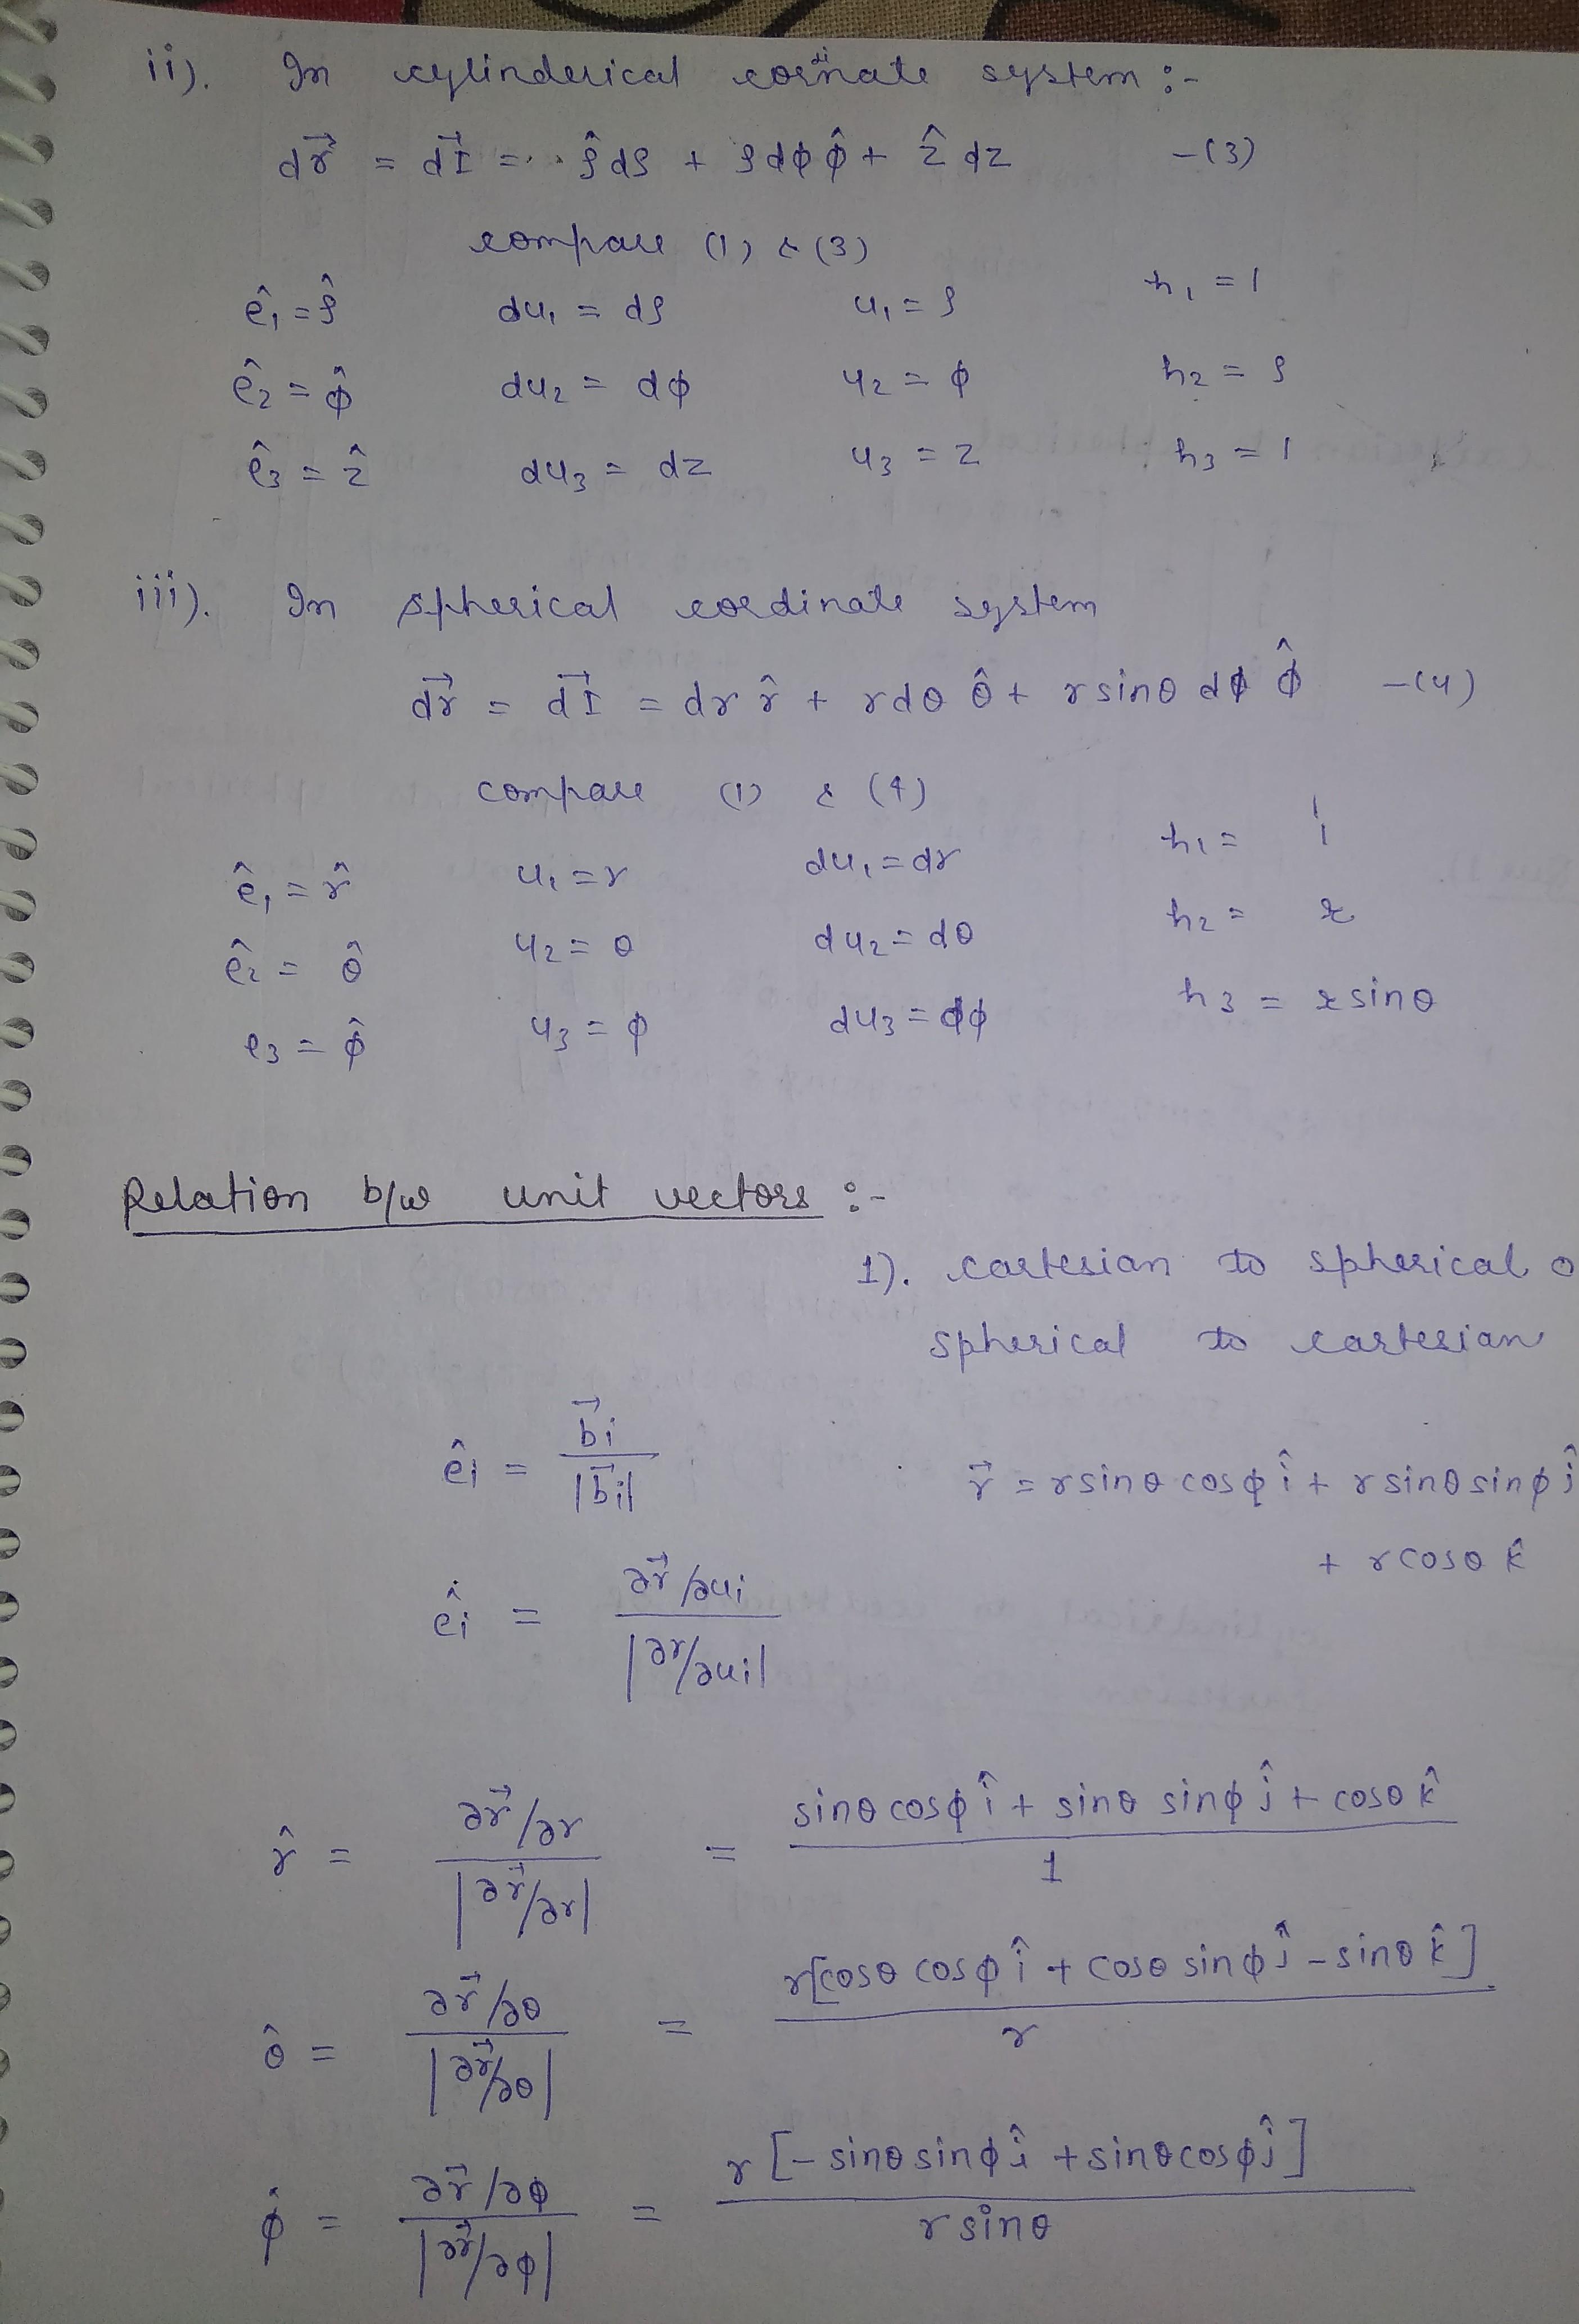 ii). In cylinderical cornate system :-
dr⃗ = dI⃗ = ρ̂ dρ + ρ dϕ ϕ̂ + ẑ dz —(3)
compare (1) & (3)
ê₁ = ρ̂ du₁ = dρ u₁ = ρ h₁ = 1
ê₂ = ϕ̂ du₂ = dϕ u₂ = ϕ h₂ = ρ
ê₃ = ẑ du₃ = dz u₃ = z h₃ = 1
iii). In spherical cordinate system
dr⃗ = dI⃗ = dr r̂ + rdθ θ̂ + rsinθ dϕ ϕ̂ —(4)
compare (1) & (4)
ê₁ = r̂ u₁ = r du₁ = dr h₁ = 1
ê₂ = θ̂ u₂ = θ du₂ = dθ h₂ = r
e₃ = ϕ̂ u₃ = ϕ du₃ = dϕ h₃ = rsinθ
Relation b/w unit vectors :-
1). cartesian to spherical o
spherical to cartesian
êi = b⃗i / |b⃗i| r⃗ = rsinθ cosϕ î + rsinθ sinϕ ĵ
+ rcosθ k̂
êi = ∂r⃗/∂ui / |∂r/∂ui|
r̂ = ∂r⃗/∂r / |∂r⃗/∂r| = sinθ cosϕ î + sinθ sinϕ ĵ + cosθ k̂ / 1
θ̂ = ∂r⃗/∂θ / |∂r⃗/∂θ| = r[cosθ cosϕ î + cosθ sinϕ ĵ - sinθ k̂] / r
ϕ̂ = ∂r⃗/∂ϕ / |∂r⃗/∂ϕ| = r[-sinθ sinϕ î + sinθ cosϕ ĵ] / r sinθ